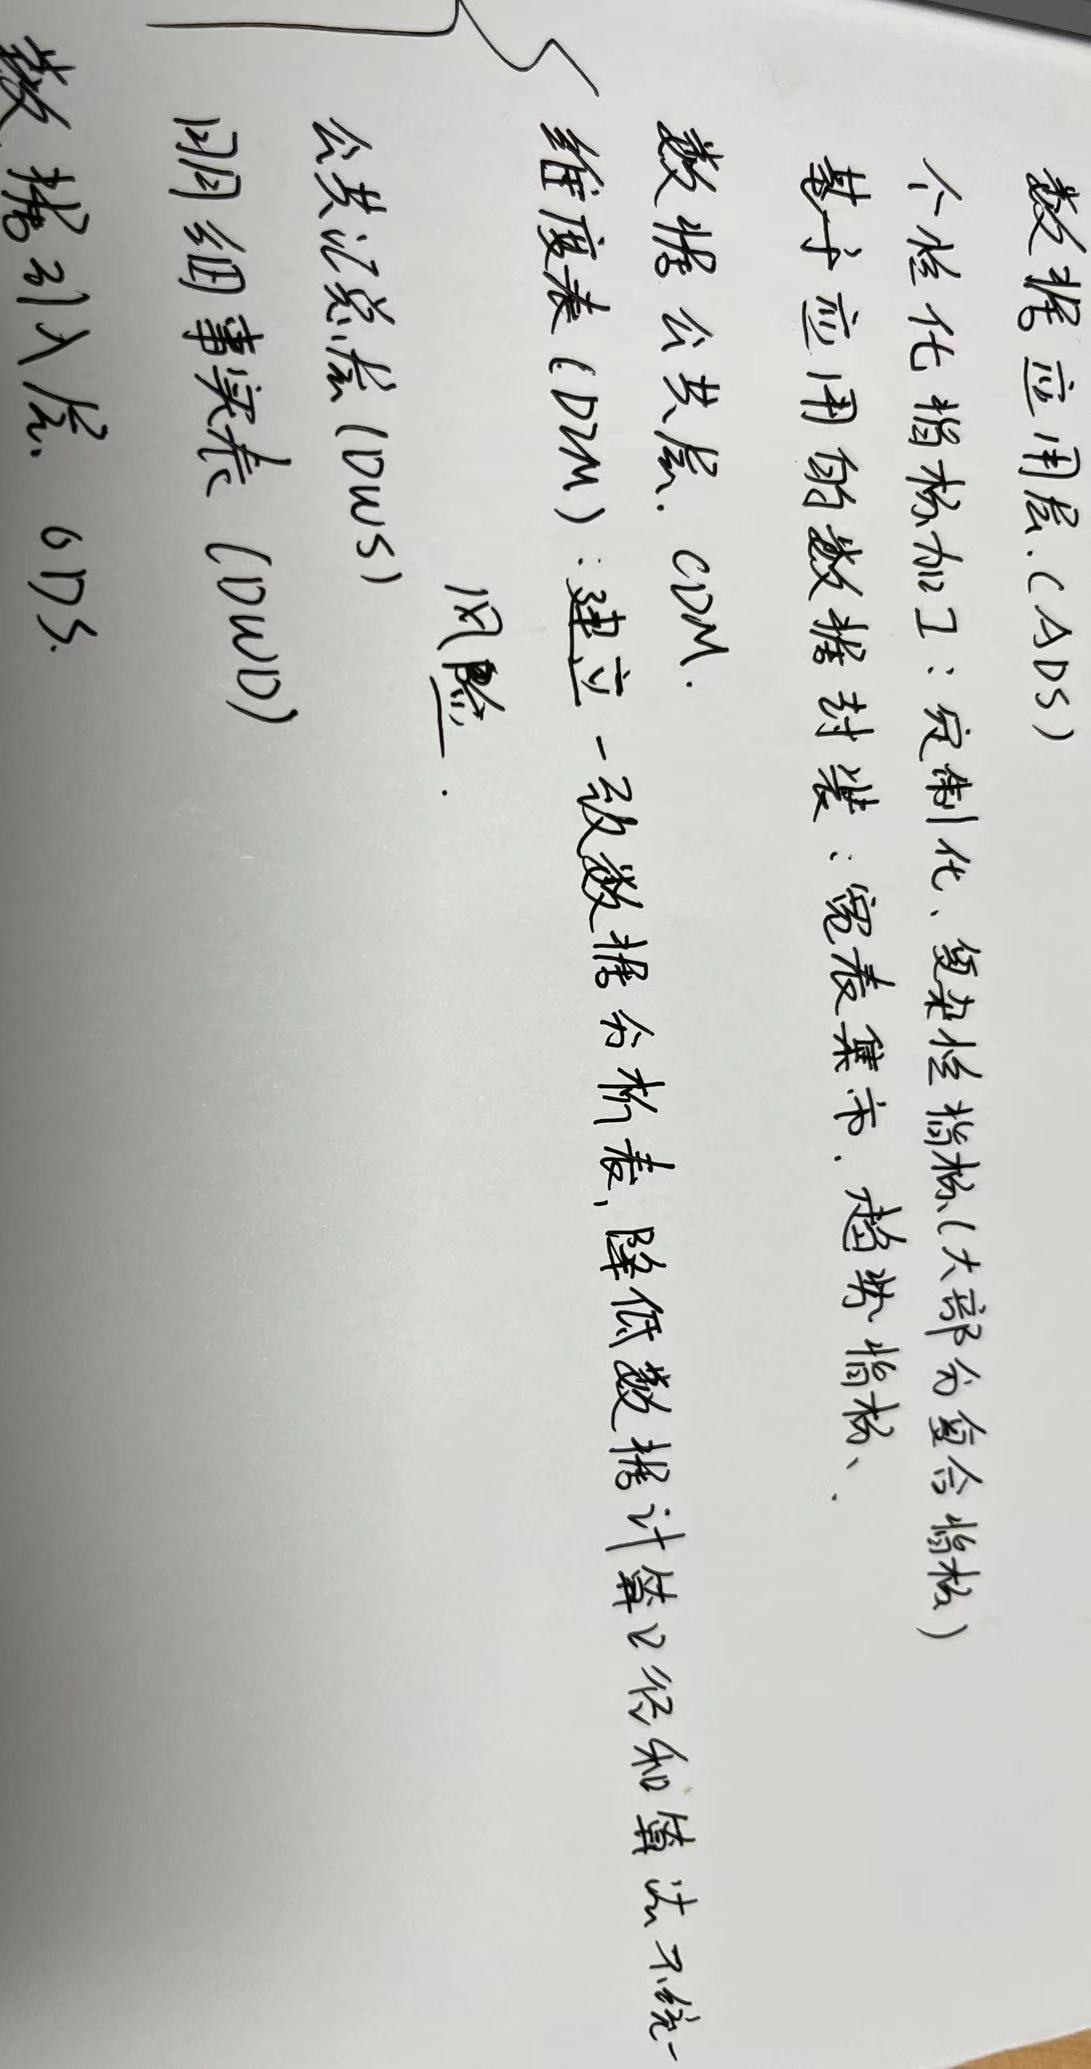 数据应用层.(ADS)
个性化指标加工:定制化、复杂性指标(大部分复合指标)
基于应用的数据封装:宽表集市、趋势指标、.
数据公共层. CDM.
维度表(DIM):建立一致数据分析表,降低数据计算口径和算法不统一
风险.
公共汇总层(DWS)
明细事实表(DWD)
数据引入层. ODS.